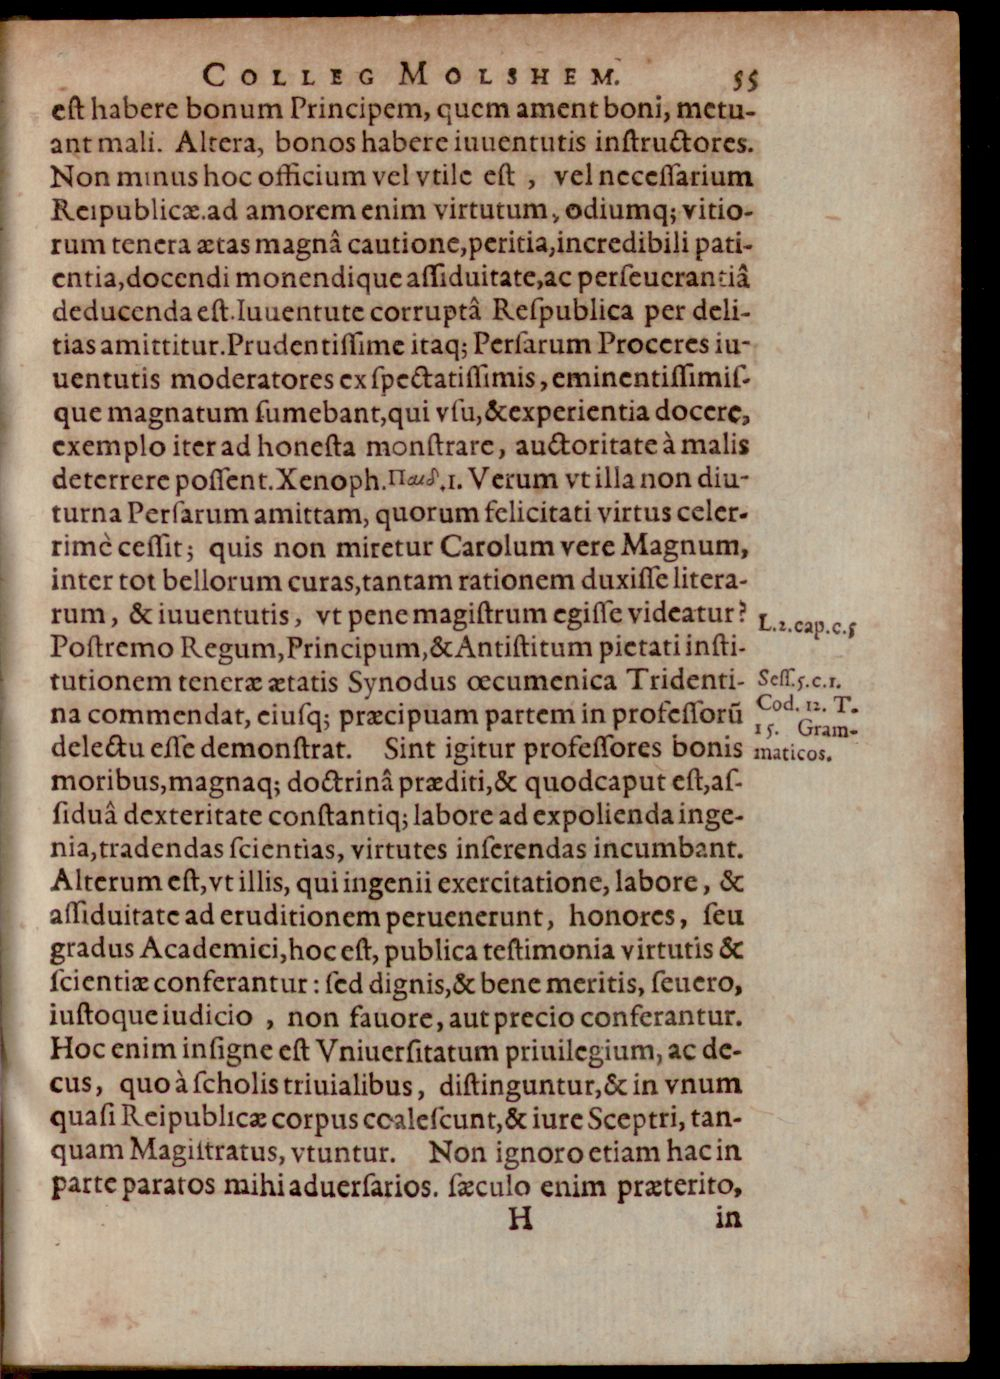 COLLEG MOLSHEM. 55
eſt habere bonum Principem, quem ament boni, metu-
ant mali. Altera, bonos habere iuuentutis inſtructores.
Non minus hoc officium vel vtile eſt , vel neceſſarium
Reipublicæ.ad amorem enim virtutum, odiumq; vitio-
rum tenera ætas magnâ cautione,peritia,incredibili pati-
entia,docendi monendique aſſiduitate,ac perſeuerantiâ
deducenda eſt.Iuuentute corruptâ Reſpublica per deli-
tias amittitur.Prudentiſſime itaq; Perſarum Proceres iu-
uentutis moderatores ex ſpectatiſſimis, eminentiſſimiſ-
que magnatum ſumebant,qui vſu,&experientia docere,
exemplo iter ad honeſta monſtrare, auctoritate à malis
deterrere poſſent.Xenoph.Παιδ.1. Verum vt illa non diu-
turna Perſarum amittam, quorum felicitati virtus celer-
rimè ceſſit; quis non miretur Carolum vere Magnum,
inter tot bellorum curas,tantam rationem duxiſſe litera-
rum, & iuuentutis, vt pene magiſtrum egiſſe videatur?
L.2.cap.c.5
Poſtremo Regum,Principum,&Antiſtitum pietati inſti-
tutionem teneræ ætatis Synodus œcumenica Tridenti-
na commendat, eiuſq; præcipuam partem in profeſſorū
delectu eſſe demonſtrat. Sint igitur profeſſores bonis
Seſſ.5.c.1.
Cod. 12. T.
15. Gram-
maticos.
moribus,magnaq; doctrinâ præditi,& quod caput eſt,aſ-
ſiduâ dexteritate conſtantiq; labore ad expolienda inge-
nia,tradendas ſcientias, virtutes inſerendas incumbant.
Alterum eſt,vt illis, qui ingenii exercitatione, labore, &
aſſiduitate ad eruditionem peruenerunt, honores, ſeu
gradus Academici,hoc eſt, publica teſtimonia virtutis &
ſcientiæ conferantur : ſed dignis,& bene meritis, ſeuero,
iuſtoque iudicio , non fauore, aut precio conferantur.
Hoc enim inſigne eſt Vniuerſitatum priuilegium, ac de-
cus, quo à ſcholis triuialibus, diſtinguntur,& in vnum
quaſi Reipublicæ corpus coaleſcunt,& iure Sceptri, tan-
quam Magiſtratus, vtuntur. Non ignoro etiam hac in
parte paratos mihi aduerſarios. ſæculo enim præterito,
H in